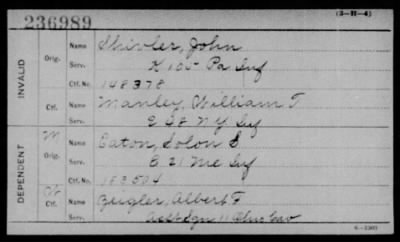 (3-H-4)
236989
INVALID
Orig. Name Shivler, John
Serv. K 105 Pa Inf
Ctf. No. 148378
Ctf. Name Manley, William T
Serv. E 48 NY Inf
DEPENDENT
M Orig. Name Eaton, Solon S
Serv. B 21 Me Inf
Ctf. No. 183504
Ctf. Name Zeigler, Albert F
Serv. Asst Sgn 11 Ohio Cav